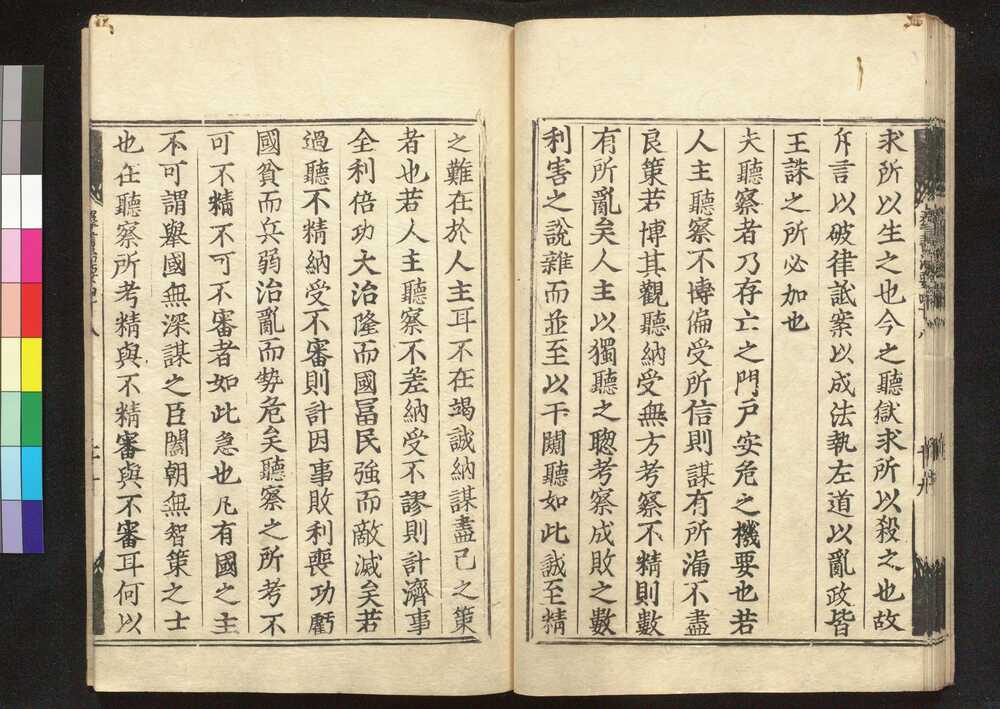 求所以生之也今之聽獄求所以殺之也故
斥言以破律詆案以成法執左道以亂政皆
王誅之所必加也
夫聽察者乃存亡之門戸安危之機要也若
人主聽察不博偏受所信則謀有所漏不盡
良策若博其觀聽納受無方考察不精則數
有所亂矣人主以獨聽之聦考察成敗之數
利害之說雜而並至以干闚聽如此誠至精
之難在於人主耳不在竭誠納謀盡己之策
者也若人主聽察不差納受不謬則計濟事
全利倍功大治隆而國冨民強而敵滅矣若
過聽不精納受不審則計因事敗利喪功虧
國貧而兵弱治亂而勢危矣聽察之所考不
可不精不可不審者如此急也凡有國之主
不可謂舉國無深謀之臣闔朝無智策之士
也在聽察所考精與不精審與不審耳何以